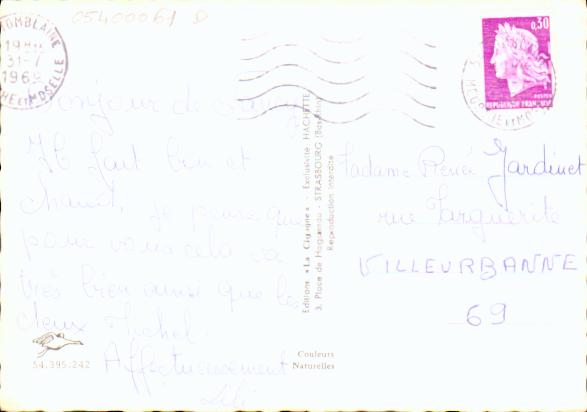 05400061 D
TOMBLAINE
19H
31-7
1969
MTHE ET MOSELLE
0,30
POSTES
REPUBLIQUE FRANÇAISE
Bonjour de Nancy
Il fait bon et
chaud, je pense que
pour vous cela va
très bien ainsi que les
deux Michel.
Affectueusement
Lili
Editions «La Cigogne» - Exclusivité HACHETTE
3, Place de Haguenau - STRASBOURG (Bas-Rhin)
Reproduction interdite
Madame Renée Jardinet
rue Marguerite
VILLEURBANNE
69
54.395.242
Couleurs
Naturelles